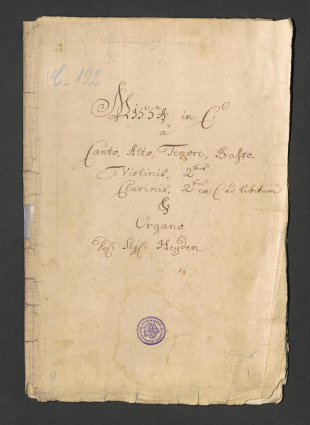 C-192
Missa in C
à
Canto, Alto, Tenore, Basso.
Violinis. 2bus
Clarinis. 2bus ex C ad libitum
&
Organo
Heyden
9